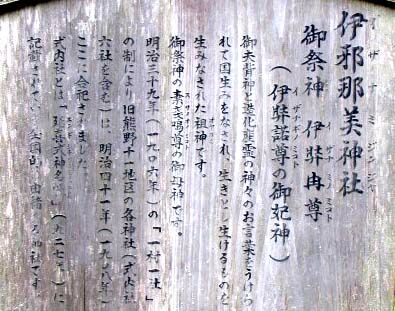 伊邪那美神社
イザナミジンジャ
御祭神 伊弉冉尊
イザナミノミコト
(伊弉諾尊の御妃神)
イザナギノミコト
神と進化産霊の神々のお言葉をうけら
れて国生みをなされ、生きとし生けるものを
生みなされた祖神です。
御祭神の素戔嗚尊の御母神です。
明治三十九年(一九〇六年)の「一村一社」
の制により旧熊野十一地区の各神社(式内社
六社を含む)は、明治四十一年(一九〇八年)
ここに合祀されました
式内社とは「延喜式神名帳」(九二七年)に
記載されている全国的に由緒ある神社です。